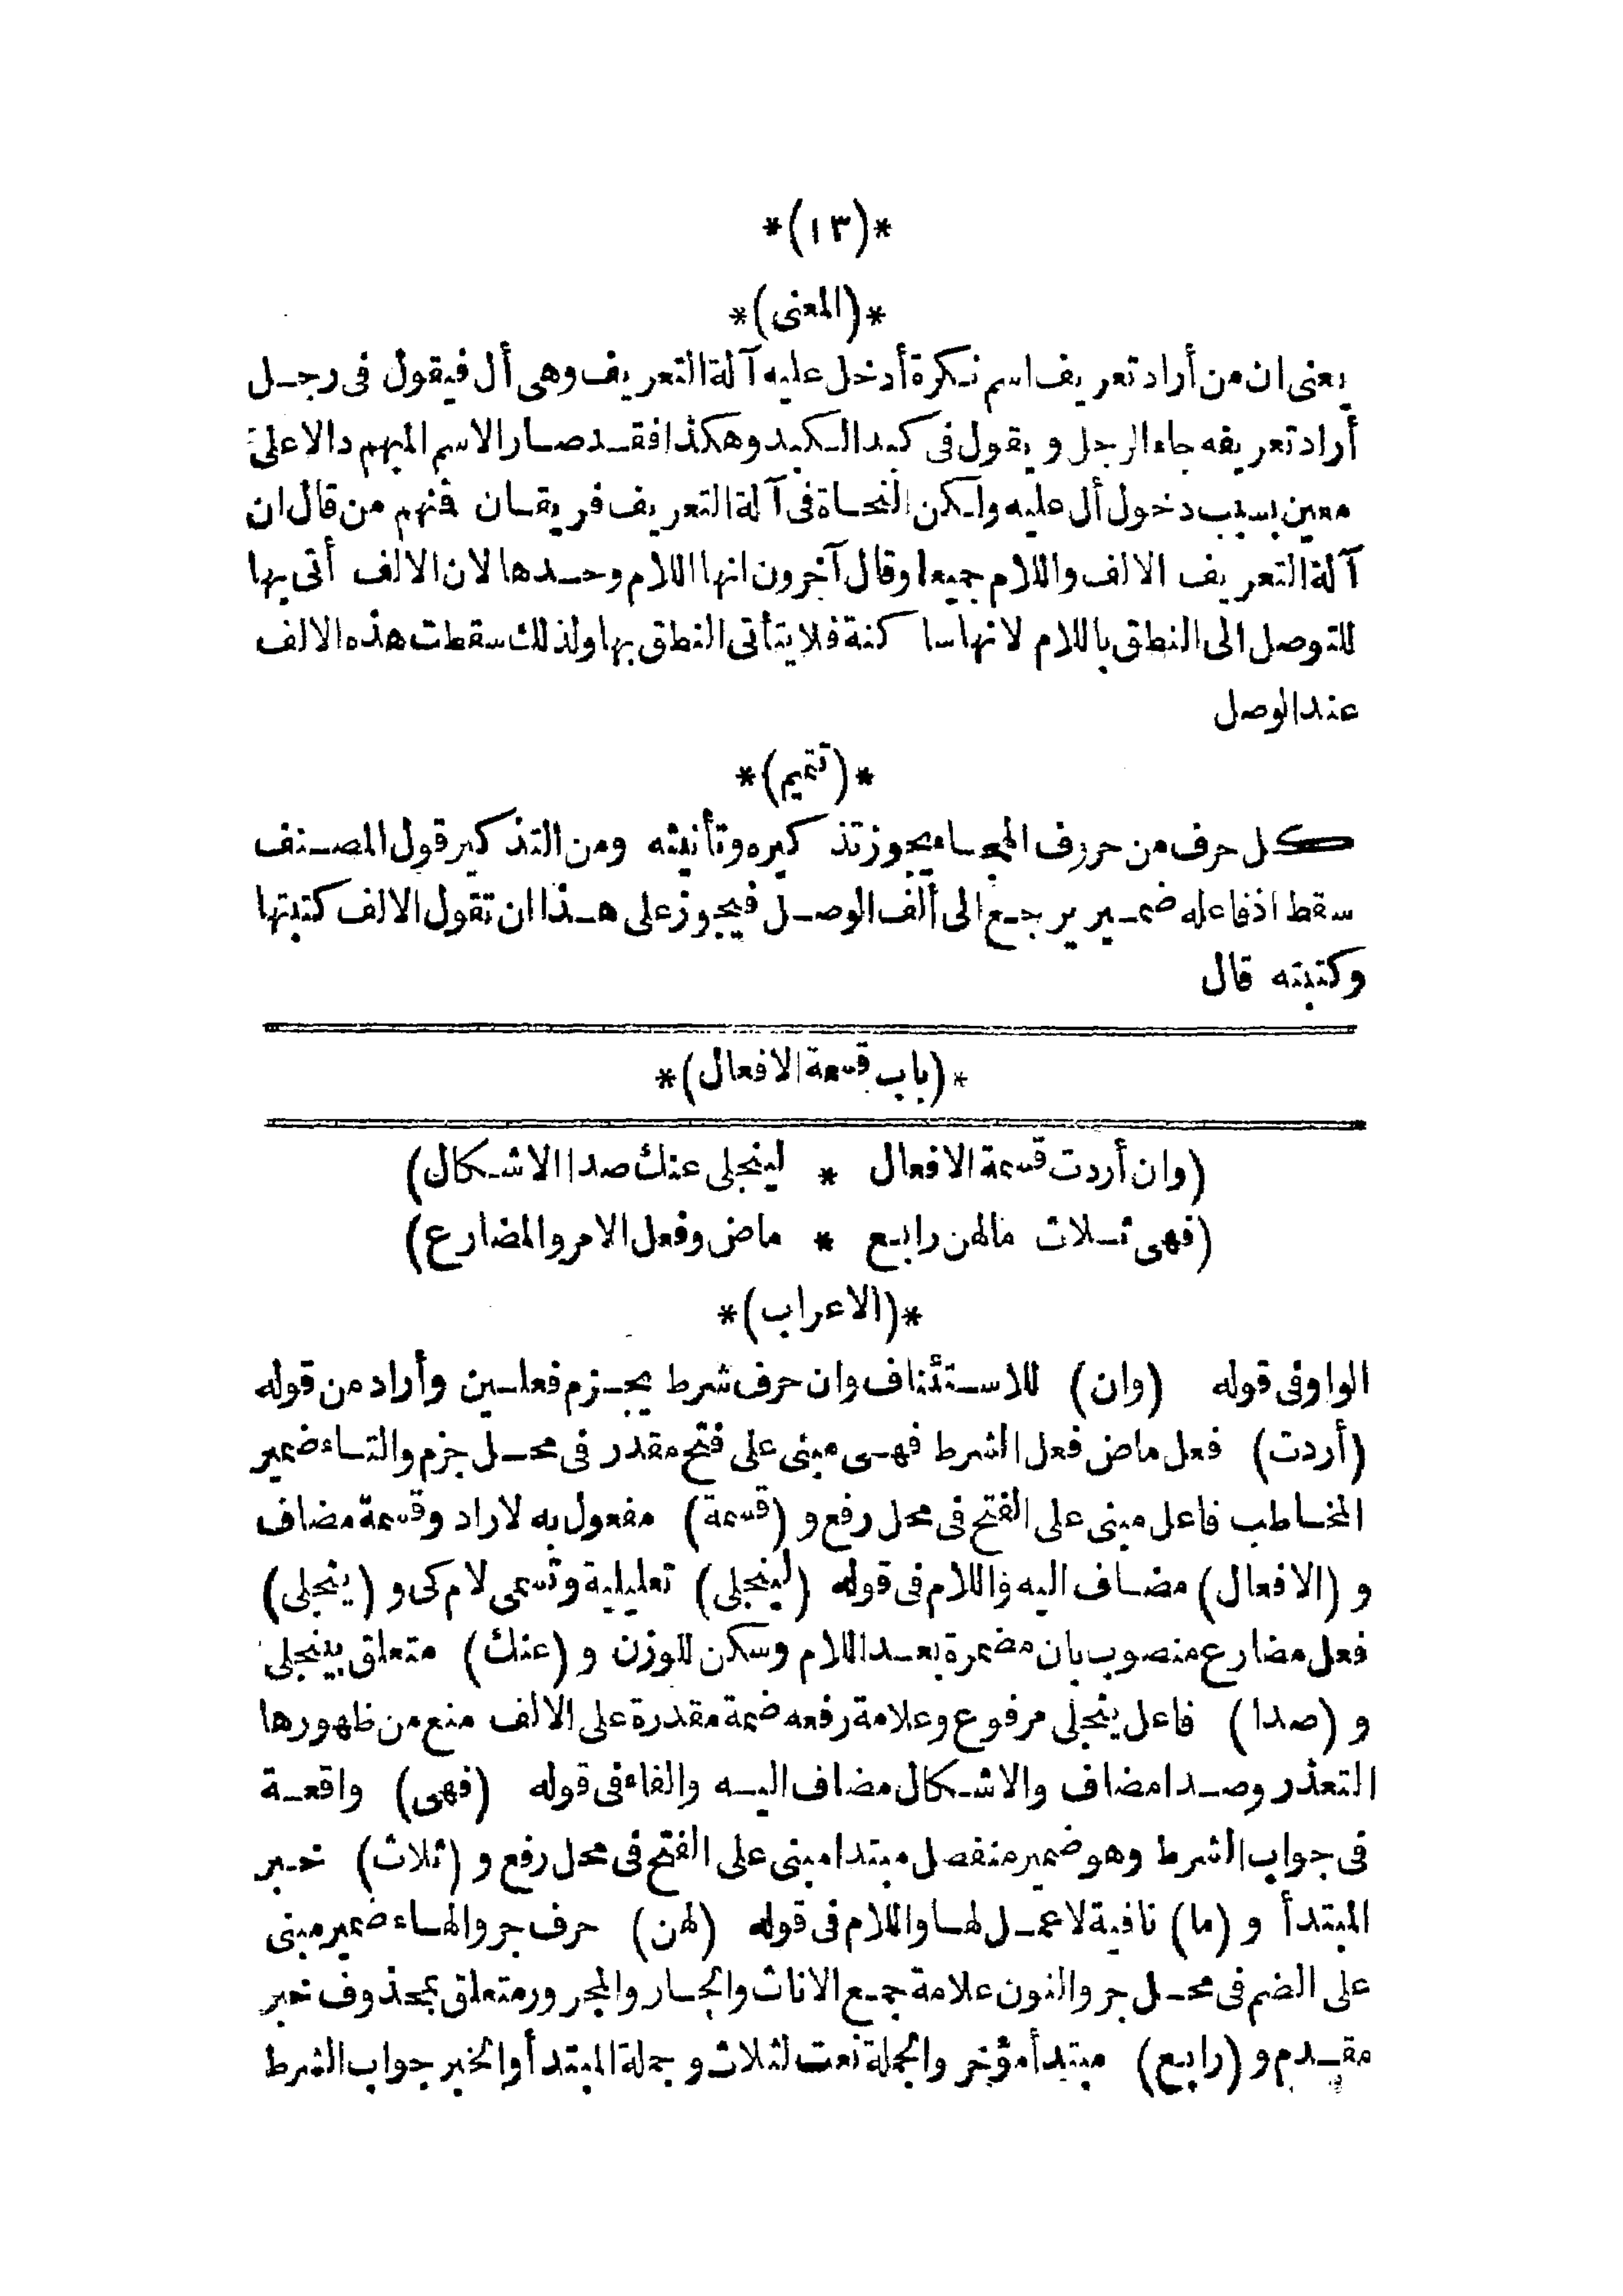 *(١٣)*
*(المعنى)*
يعنى ان من أراد تعريف اسم نكرة أدخل عليه آلة التعريف وهى أل فيقول فى رجل
أراد تعريفه جاء الرجل ويقول فى كبد الكبد وهكذا فقد صار الاسم المبهم دالا على
معين بسبب دخول أل عليه ولكن النحاة فى آلة التعريف فريقان فمنهم من قال ان
آلة التعريف الالف واللام جميعا وقال آخرون انها اللام وحدها لان الالف أتى بها
للتوصل الى النطق باللام لانها ساكنة فلا يتأتى النطق بها ولذلك سقطت هذه الالف
عند الوصل
*(تتميم)*
كل حرف من حروف الهجاء يجوز تذكيره وتأنيثه ومن التذكير قول المصنف
سقط اذ فاعله ضمير يرجع الى ألف الوصل فيجوز على هذا ان تقول الالف كتبتها
وكتبته قال
*(باب قسمة الافعال)*
(وان أردت قسمة الافعال * لينجلى عنك صدا الاشكال)
(فهى ثلاث مالهن رابع * ماض وفعل الامر والمضارع)
*(الاعراب)*
الواو فى قوله (وان) للاستئناف وان حرف شرط يجزم فعلين وأراد من قوله
(أردت) فعل ماض فعل الشرط فهى مبنى على فتح مقدر فى محل جزم والتاء ضمير
المخاطب فاعل مبنى على الفتح فى محل رفع و (قسمة) مفعول به لاراد وقسمة مضاف
و (الافعال) مضاف اليه واللام فى قوله (لينجلى) تعليلية وتسمى لام كى و (ينجلى)
فعل مضارع منصوب بان مضمرة بعد اللام وسكن للوزن و (عنك) متعلق بينجلى
و (صدا) فاعل ينجلى مرفوع وعلامة رفعه ضمة مقدرة على الالف منع من ظهورها
التعذر وصدا مضاف والاشكال مضاف اليه والفاء فى قوله (فهى) واقعة
فى جواب الشرط وهو ضمير منفصل مبتدا مبنى على الفتح فى محل رفع و (ثلاث) خبر
المبتدأ و (ما) نافية لا عمل لها واللام فى قوله (لهن) حرف جر والهاء ضمير مبنى
على الضم فى محل جر والنون علامة جمع الاناث والجار والمجرور متعلق بمحذوف خبر
مقدم و (رابع) مبتدأ مؤخر والجملة نعت لثلاث وجملة المبتدأ والخبر جواب الشرط